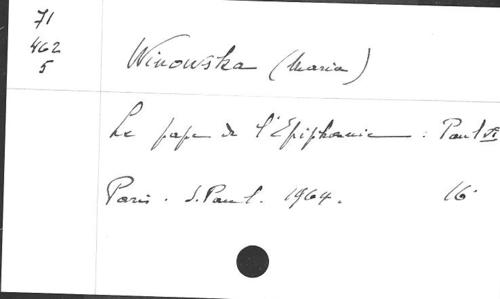 71
462
5
Winowska (Maria)
Le pape de l'Epiphanie : Paul VI
Paris. S. Paul. 1964. 16°